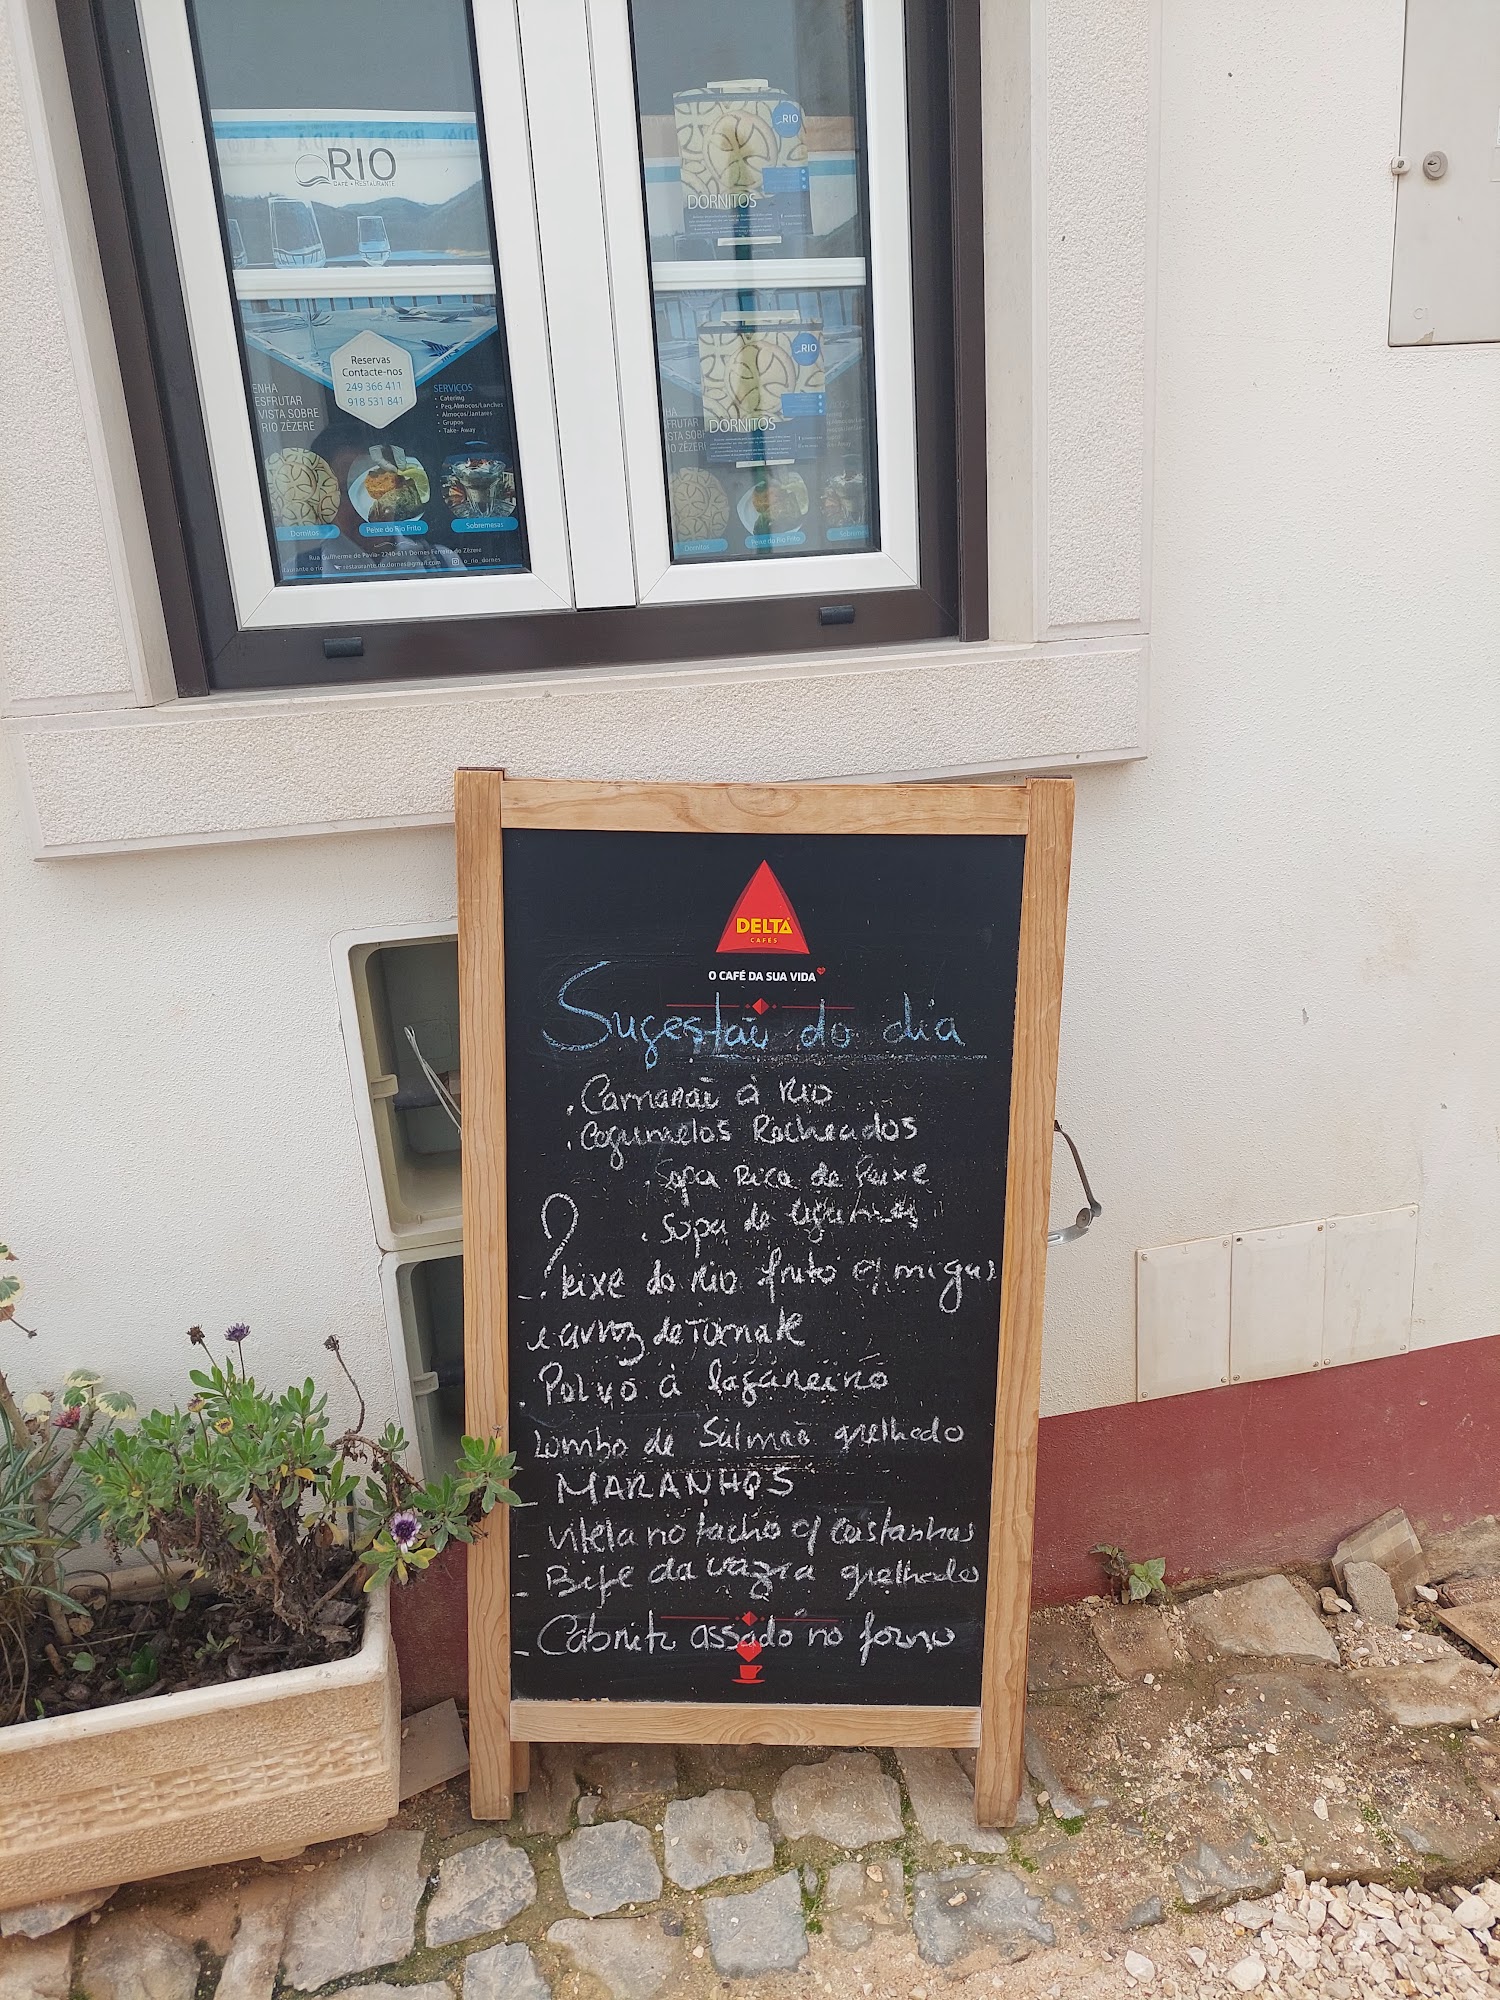 RIO
CAFÉ • RESTAURANTE
Reservas
Contacte-nos
249 366 411
918 531 841
ENHA
ESFRUTAR
VISTA SOBRE
RIO ZÊZERE
SERVIÇOS
• Catering
• Peq.Almoços/Lanches
• Almoços/Jantares
• Grupos
• Take- Away
Dornitos
Peixe do Rio Frito
Sobremesas
Rua Guilherme de Pavia- 2240-611 Dornes Ferreira do Zêzere
restaurante.rio.dornes@gmail.com
o_rio_dornes
RIO
DORNITOS
RIO
DORNITOS
Dornitos
Peixe do Rio Frito
DELTA
CAFÉS
O CAFÉ DA SUA VIDA
Sugestão do dia
. Camarão à Rio
. Cogumelos Recheados
. Sopa Rica de Peixe
. Sopa de legumes
- Peixe do rio frito c/ migas
e arroz de Tomate
. Polvo à lagareiro
Lombo de Salmão grelhado
- MARANHOS
Vitela no tacho c/ Castanhas
- Bife da vazia grelhado
- Cabrito assado no forno